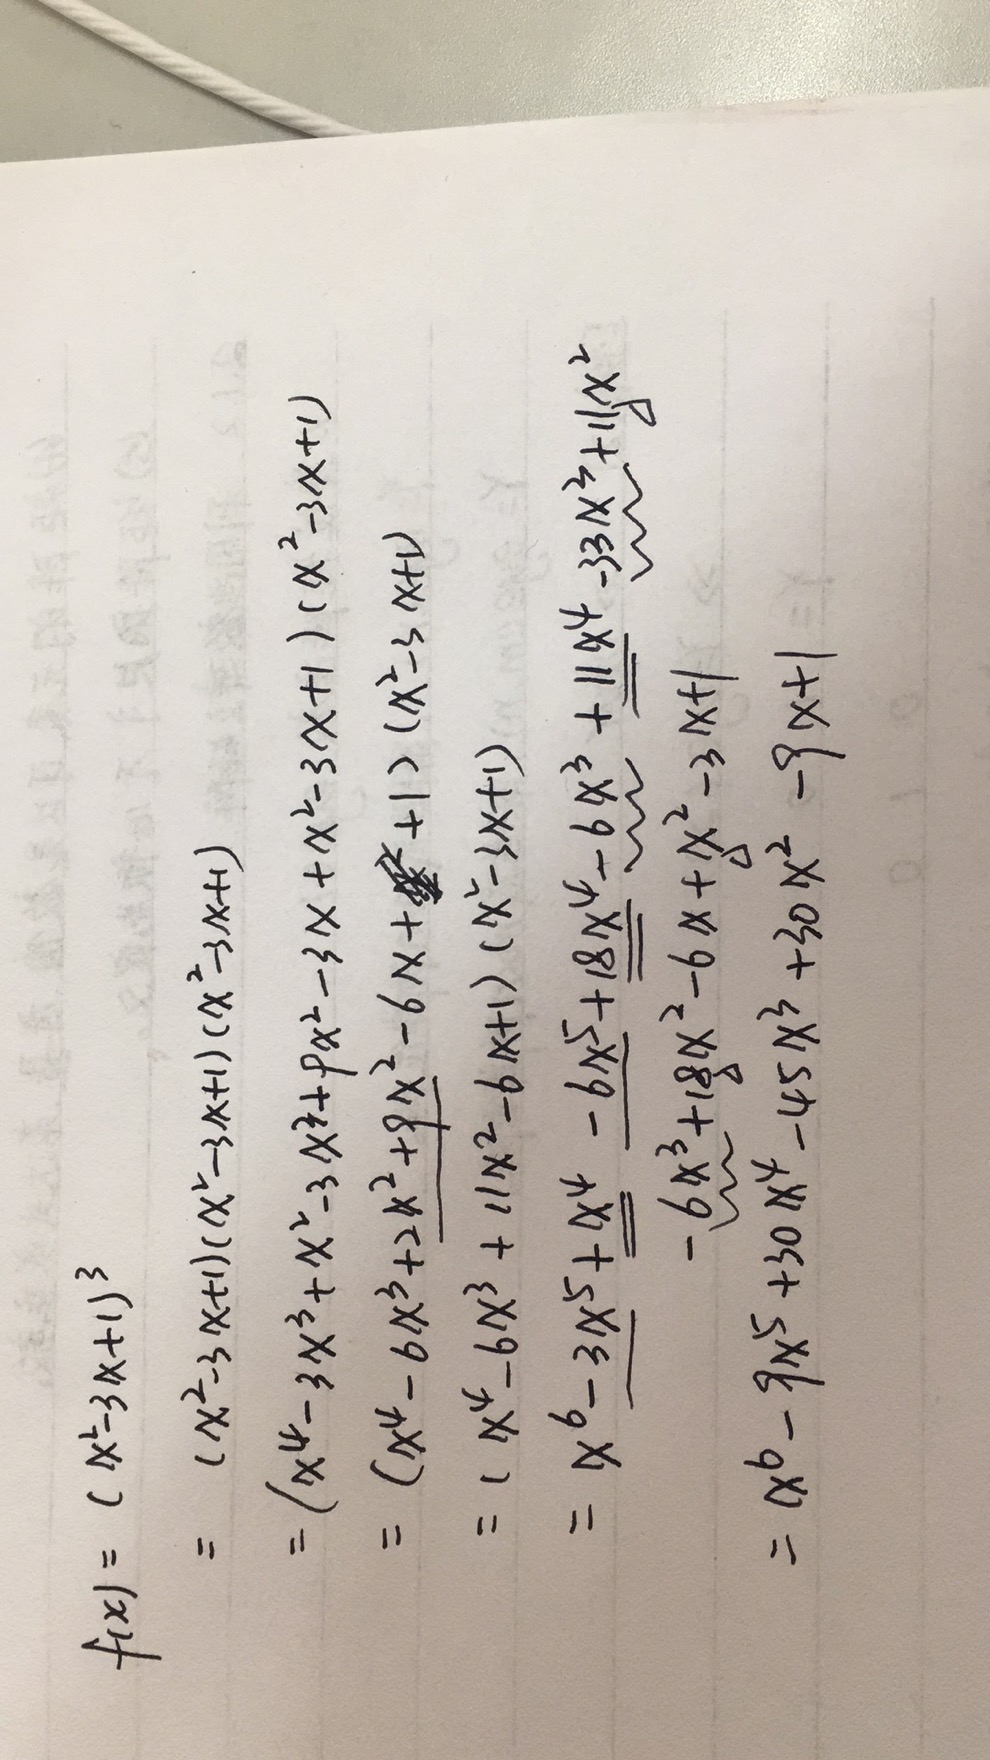 f(x) = (x²-3x+1)³
= (x²-3x+1)(x²-3x+1)(x²-3x+1)
= (x⁴-3x³+x²-3x³+9x²-3x+x²-3x+1)(x²-3x+1)
= (x⁴-6x³+2x²+9x²-6x+1)(x²-3x+1)
= (x⁴-6x³+11x²-6x+1)(x²-3x+1)
= x⁶-3x⁵+x⁴-6x⁵+18x⁴-6x³+11x⁴-33x³+11x²
-6x³+18x²-6x+x²-3x+1
= x⁶-9x⁵+30x⁴-45x³+30x²-9x+1